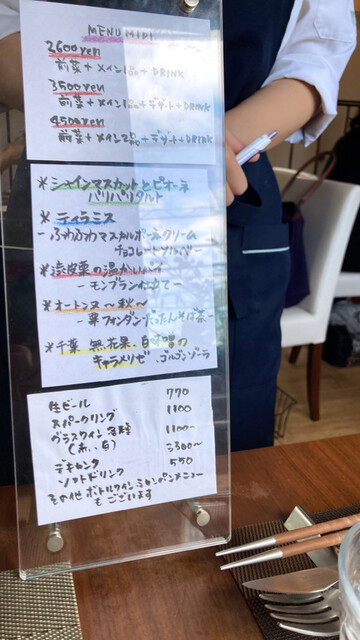 MENU MIDI
2600yen
前菜+メイン1品+DRINK
3500yen
前菜+メイン1品+デザート+DRINK
4500yen
前菜+メイン2品+デザート+DRINK
*シャインマスカットとピオーネ
パリパリタルト
*ティラミス
-ふわふわマスカルポーネクリーム
チョコレートソルベ-
*渋皮栗の温かい
-モンブラン仕立て-
*オートンヌ〜秋〜
-栗フォンダン、だったんそば茶-
*千葉 無花果、自味醂の
キャラメリゼ、ゴルゴンゾーラ
生ビール 770
スパークリング 1100
グラスワイン各種 1100〜
(赤、白)
デキャンタ 2300〜
ソフトドリンク 550
その他ボトルワイン、シャンパンメニュー
もございます